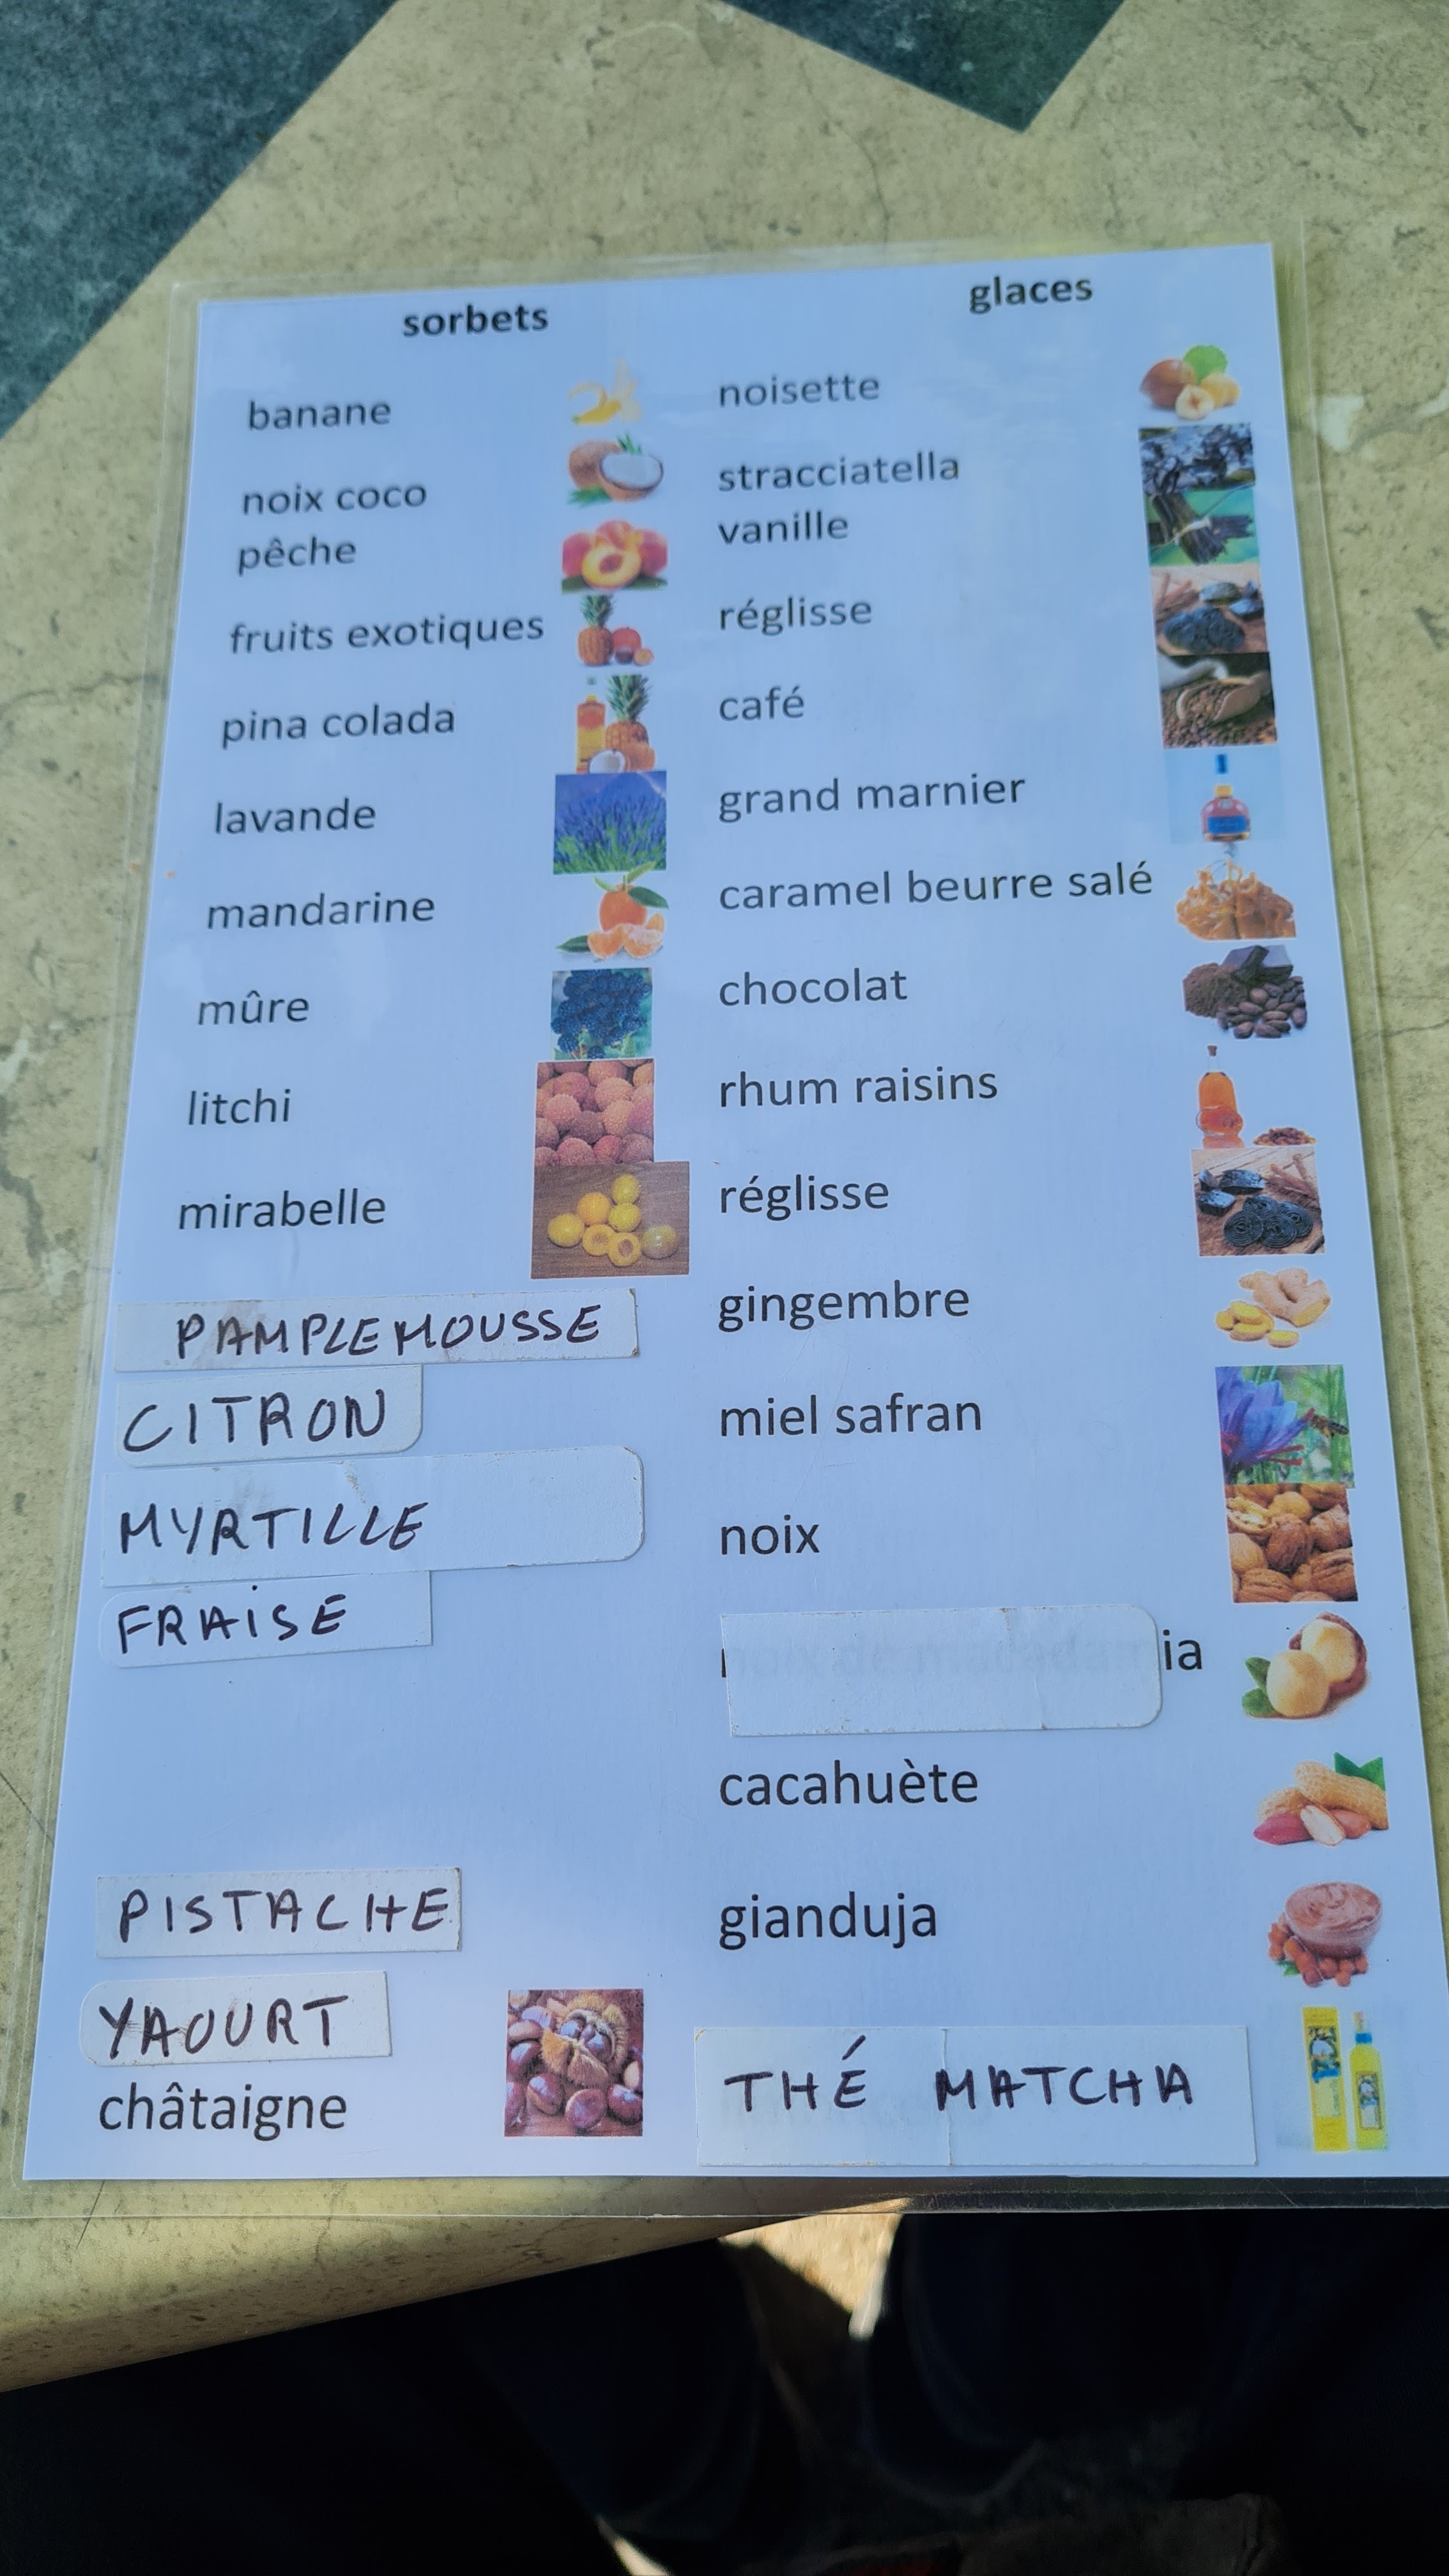 sorbets
banane
noix coco
pêche
fruits exotiques
pina colada
lavande
mandarine
mûre
litchi
mirabelle
PAMPLEMOUSSE
CITRON
MYRTILLE
FRAISE
PISTACHE
YAOURT
châtaigne
glaces
noisette
stracciatella
vanille
réglisse
café
grand marnier
caramel beurre salé
chocolat
rhum raisins
réglisse
gingembre
miel safran
noix
noix de macadamia
cacahuète
gianduja
THÉ MATCHA